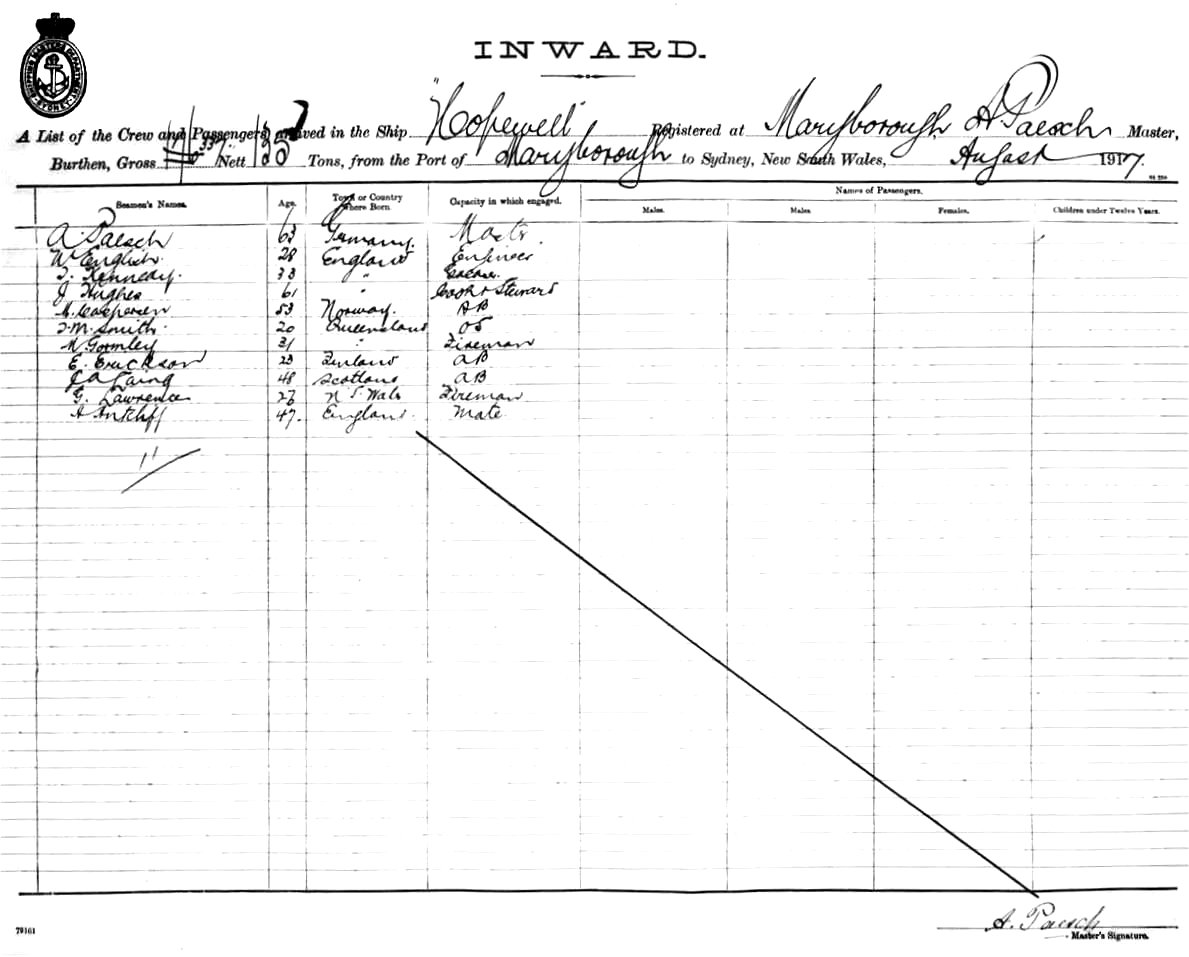 SHIPPING MASTERS DEPARTMENT
SYDNEY
INWARD.
A List of the Crew and Passengers arrived in the Ship "Hopewell" Registered at Maryborough, A Paesch Master,
Burthen, Gross Nett Tons, from the Port of Maryborough to Sydney, New South Wales, August 1917.
Seamen's Names. Age. Town or Country where Born. Capacity in which engaged. Names of Passengers.
Males. Males. Females. Children under Twelve Years.
A. Paesch 63 Germany. Master
W English. 28 England Engineer
T. Kennedy. 33 "
J Hughes 61 " Cook & Steward
53 Norway. AB
T. M. Smith. 20 Queensland OS
N Gormley 31 " Fireman
E. Erickson 23 Finland AB
J A Laing 48 Scotland AB
G. Lawrence N S Wales Fireman
A Antcliff 47. England. Mate
11
A. Paesch
79161 Master's Signature.